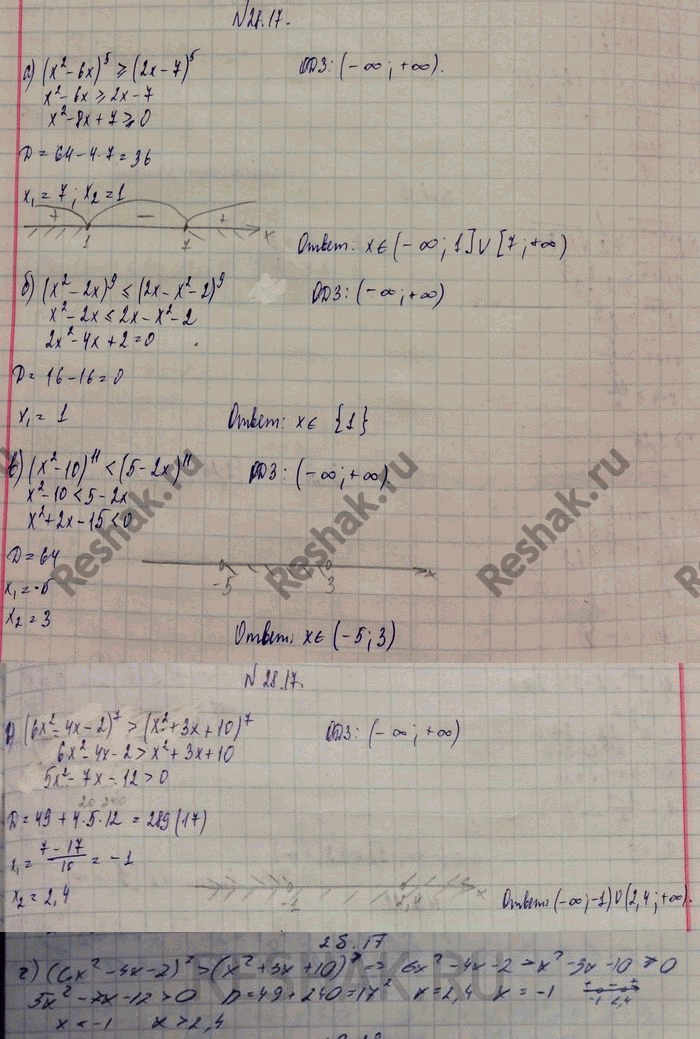 №28.17.
а) (x²-6x)⁵ ≥ (2x-7)⁵ ОДЗ: (-∞; +∞).
x²-6x ≥ 2x-7
x²-8x+7 ≥ 0
D = 64-4·7 = 36
x₁ = 7; x₂ = 1
+ - +
1 7 x
Ответ: x∈(-∞; 1]∪[7; +∞)
б) (x²-2x)⁹ ≤ (2x-x²-2)⁹ ОДЗ: (-∞; +∞)
x²-2x ≤ 2x-x²-2
2x²-4x+2=0
D = 16-16=0
x₁ = 1 Ответ: x∈ {1}
в) (x²-10)¹¹ < (5-2x)¹¹ ОДЗ: (-∞; +∞).
x²-10 < 5-2x
x²+2x-15<0
D = 64
x₁ = -5
-5 3 x
x₂ = 3
Ответ: x∈ (-5; 3)
Reshak.ru Reshak.ru
№28.17.
(6x²-4x-2)⁷ > (x²+3x+10)⁷ ОДЗ: (-∞; +∞)
6x²-4x-2 > x²+3x+10
5x²-7x-12>0
D = 49+4·5·12 = 289 (17)
x₁ = 7-17/10 = -1
-1 2,4 x
x₂ = 2,4 Ответ: (-∞; -1)∪(2,4; +∞).
28.17
г) (6x²-4x-2)⁷ > (x²+3x+10)⁷ => 6x²-4x-2-x²-3x-10 > 0
5x²-7x-12>0 D=49+240=17² x=2,4 x=-1 + - + -1 2,4
x<-1 x>2,4